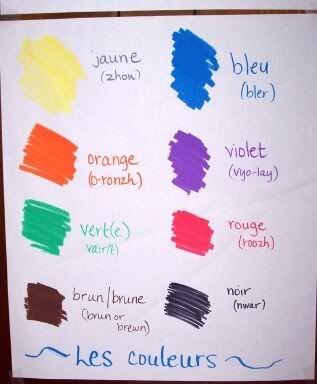 jaune
(zhon)
bleu
(bler)
orange
(o-ronzh)
violet
(vyo-lay)
vert(e)
vair/t)
rouge
(roozh)
brun/brune
(brun or
brewn)
noir
(nwar)
~ Les couleurs ~